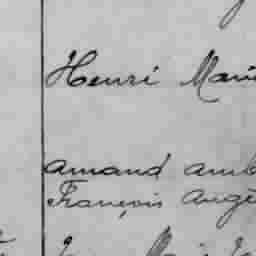 Henri Mari
Amand Amb
François Angè